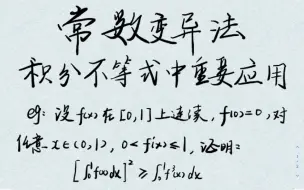 常数变异法
积分不等式中重要应用
eg: 设f(x)在[0,1]上连续, f(0)=0, 对
任意 x∈(0,1), 0<f'(x)≤1, 证明:
[∫₀¹f(x)dx]² ≥ ∫₀¹f³(x)dx